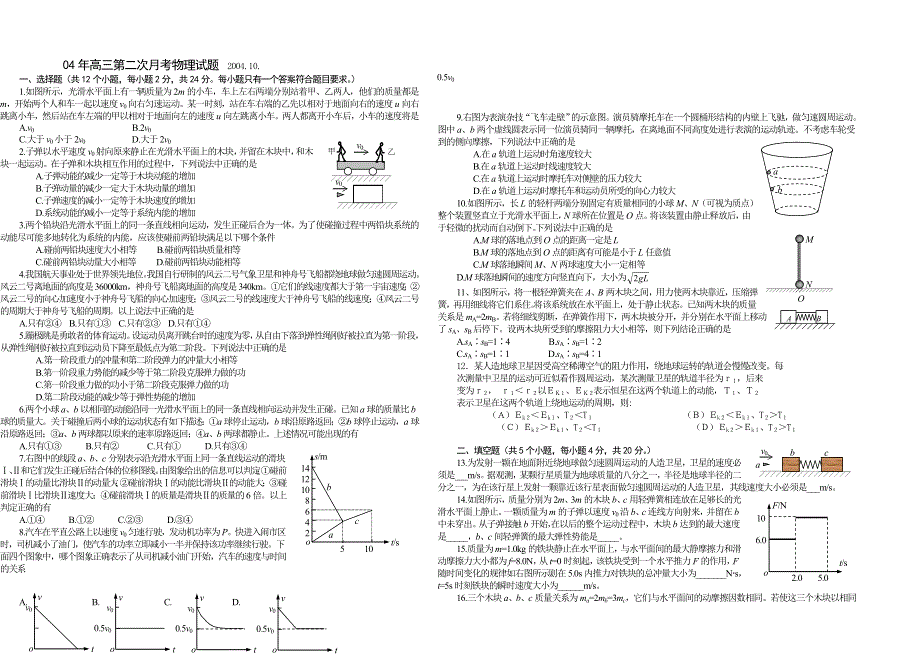 04 年高三第二次月考物理试题 2004.10.
一、选择题（共 12 个小题，每小题 2 分，共 24 分。每小题只有一个答案符合题目要求。）
1.如图所示，光滑水平面上有一辆质量为 2m 的小车，车上左右两端分别站着甲、乙两人，他们的质量都是
m，开始两个人和车一起以速度 v₀ 向右匀速运动。某一时刻，站在车右端的乙先以相对于地面向右的速度 u 向右
跳离小车，然后站在车左端的甲以相对于地面向左的速度 u 向左跳离小车。两人都离开小车后，小车的速度将是
A.v₀ B.2v₀
C.大于 v₀ 小于 2v₀ D.大于 2v₀
2.子弹以水平速度 v₀ 射向原来静止在光滑水平面上的木块，并留在木块中，和木
块一起运动。在子弹和木块相互作用的过程中，下列说法中正确的是
A.子弹动能的减少一定等于木块动能的增加
B.子弹动量的减少一定大于木块动量的增加
C.子弹速度的减小一定等于木块速度的增加
D.系统动能的减小一定等于系统内能的增加
甲 v₀ v₀ 乙
v₀
3.两个铅块沿光滑水平面上的同一条直线相向运动，发生正碰后合为一体，为了使碰撞过程中两铅块系统的
动能尽可能多地转化为系统的内能，应该使碰前两铅块满足以下哪个条件
A.碰前两铅块速度大小相等 B.碰前两铅块质量相等
C.碰前两铅块动量大小相等 D.碰前两铅块动能相等
4.我国航天事业处于世界领先地位。我国自行研制的风云二号气象卫星和神舟号飞船都绕地球做匀速圆周运动。
风云二号离地面的高度是 36000km，神舟号飞船离地面的高度是 340km。①它们的线速度都大于第一宇宙速度；②
风云二号的向心加速度小于神舟号飞船的向心加速度；③风云二号的线速度大于神舟号飞船的线速度；④风云二号
的周期大于神舟号飞船的周期。以上说法中正确的是
A.只有②④ B.只有①③ C.只有②③ D.只有①④
5.蹦极跳是勇敢者的体育运动。设运动员离开跳台时的速度为零，从自由下落到弹性绳刚好被拉直为第一阶段，
从弹性绳刚好被拉直到运动员下降至最低点为第二阶段。下列说法中正确的是
A.第一阶段重力的冲量和第二阶段弹力的冲量大小相等
B.第一阶段重力势能的减少等于第二阶段克服弹力做的功
C.第一阶段重力做的功小于第二阶段克服弹力做的功
D.第二阶段动能的减少等于弹性势能的增加
6.两个小球 a、b 以相同的动能沿同一光滑水平面上的同一条直线相向运动并发生正碰。已知 a 球的质量比 b
球的质量大。关于碰撞后两小球的运动状态有如下描述：①a 球停止运动，b 球沿原路返回；②b 球停止运动，a 球
沿原路返回；③a、b 两球都以原来的速率原路返回；④a、b 两球都静止。上述情况可能出现的有
A.只有①③ B.只有② C.只有① D.只有③
7.右图中的线段 a、b、c 分别表示沿光滑水平面上同一条直线运动的滑块
Ⅰ、Ⅱ和它们发生正碰后结合体的位移图线。由图象给出的信息可以判定①碰前
滑块Ⅰ的动量比滑块Ⅱ的动量大；②碰前滑块Ⅰ的动能比滑块Ⅱ的动能大；③碰
前滑块Ⅰ比滑块Ⅱ速度大；④碰前滑块Ⅰ的质量是滑块Ⅱ的质量的 6 倍。以上
判定正确的有
A.①④ B.①② C.②③ D.③④
s/m
14
12
10
8
6
4
2
0
a b c
5 10 t/s
8.汽车在平直公路上以速度 v₀ 匀速行驶，发动机功率为 P。快进入闹市区
时，司机减小了油门，使汽车的功率立即减小一半并保持该功率继续行驶。下
面四个图象中，哪个图象正确表示了从司机减小油门开始，汽车的速度与时间
的关系
A. B. C. D.
v v v v
v₀ v₀ v₀
0.5v₀ 0.5v₀ 0.5v₀
o t o t o t o t
0.5v₀
9.右图为表演杂技“飞车走壁”的示意图。演员骑摩托车在一个圆桶形结构的内壁上飞驰，做匀速圆周运动。
图中 a、b 两个虚线圆表示同一位演员骑同一辆摩托，在离地面不同高度处进行表演的运动轨迹。不考虑车轮受
到的侧向摩擦，下列说法中正确的是
A.在 a 轨道上运动时角速度较大
B.在 a 轨道上运动时线速度较大
C.在 a 轨道上运动时摩托车对侧壁的压力较大
D.在 a 轨道上运动时摩托车和运动员所受的向心力较大
a
b
10.如图所示，长 L 的轻杆两端分别固定有质量相同的小球 M、N（可视为质点）
整个装置竖直立于光滑水平面上，N 球所在位置是 O 点。将该装置由静止释放后，由
于轻微的扰动而自动倒下。下列说法中正确的是
A.M 球的落地点到 O 点的距离一定是 L
B.M 球的落地点到 O 点的距离有可能是小于 L 任意值
C.M 球落地瞬间 M、N 两球速度大小一定相等
D.M 球落地瞬间的速度方向竖直向下，大小为 √2gL
M
N
O
11、如图所示，将一根轻弹簧夹在 A、B 两木块之间，用力使两木块靠近，压缩弹
簧，再用细线将它们系住。将该系统放在水平面上，处于静止状态。已知两木块的质量
关系是 mA=2mB。若将细线剪断，在弹簧作用下，两木块被分开，并分别在水平面上移动
了 sA、sB 后停下。设两木块所受到的摩擦阻力大小相等，则下列结论正确的是
A.sA∶sB=1∶4 B.sA∶sB=1∶2
C.sA∶sB=1∶1 D.sA∶sB=4∶1
A B
12．某人造地球卫星因受高空稀薄空气的阻力作用，绕地球运转的轨道会慢慢改变。每
次测量中卫星的运动可近似看作圆周运动，某次测量卫星的轨道半径为 r₁，后来
变为 r₂， r₁＜r₂ 以 EK1、EK2 表示恒星在这两个轨道上的动能， T₁、T₂
表示卫星在这两个轨道上绕地运动的周期，则：
（A）Ek2＜Ek1、T2＜T1 （B）Ek2＜Ek1、T2＞T1
（C）Ek2＞Ek1、T2＜T1 （D）Ek2＞Ek1、T2＞T1
二、填空题（共 5 个小题，每小题 4 分，共 20 分。）
13.为发射一颗在地面附近绕地球做匀速圆周运动的人造卫星，卫星的速度必
须是___m/s。据观测，某颗行星质量为地球质量的八分之一，半径是地球半径的二
分之一，为在该行星上发射一颗靠近该行星表面做匀速圆周运动的人造卫星，其线速度大小必须是___m/s。
v₀ b c
a
14.如图所示，质量分别为 2m、3m 的木块 b、c 用轻弹簧相连放在足够长的光
滑水平面上静止。一颗质量为 m 的子弹以速度 v₀ 沿 b、c 连线方向射来，并留在 b
中未穿出。从子弹接触 b 开始，在以后的整个运动过程中，木块 b 达到的最大速度
是_____，b、c 间轻弹簧的最大弹性势能是_____。
15.质量为 m=1.0kg 的铁块静止在水平面上，与水平面间的最大静摩擦力和滑
动摩擦力大小都为 f=8.0N，从 t=0 时刻起，该铁块受到一个水平推力 F 的作用，F
随时间变化的规律如右图所示则在 5.0s 内推力对铁块的总冲量大小为_____N·s，
t=5s 时刻铁块的瞬时速度大小为_____m/s。
F/N
10
6.0
o 2.0 5.0 t/s
16.三个木块 a、b、c 质量关系为 ma=2mb=3mc，它们与水平面间的动摩擦因数相同。若使这三个木块以相同